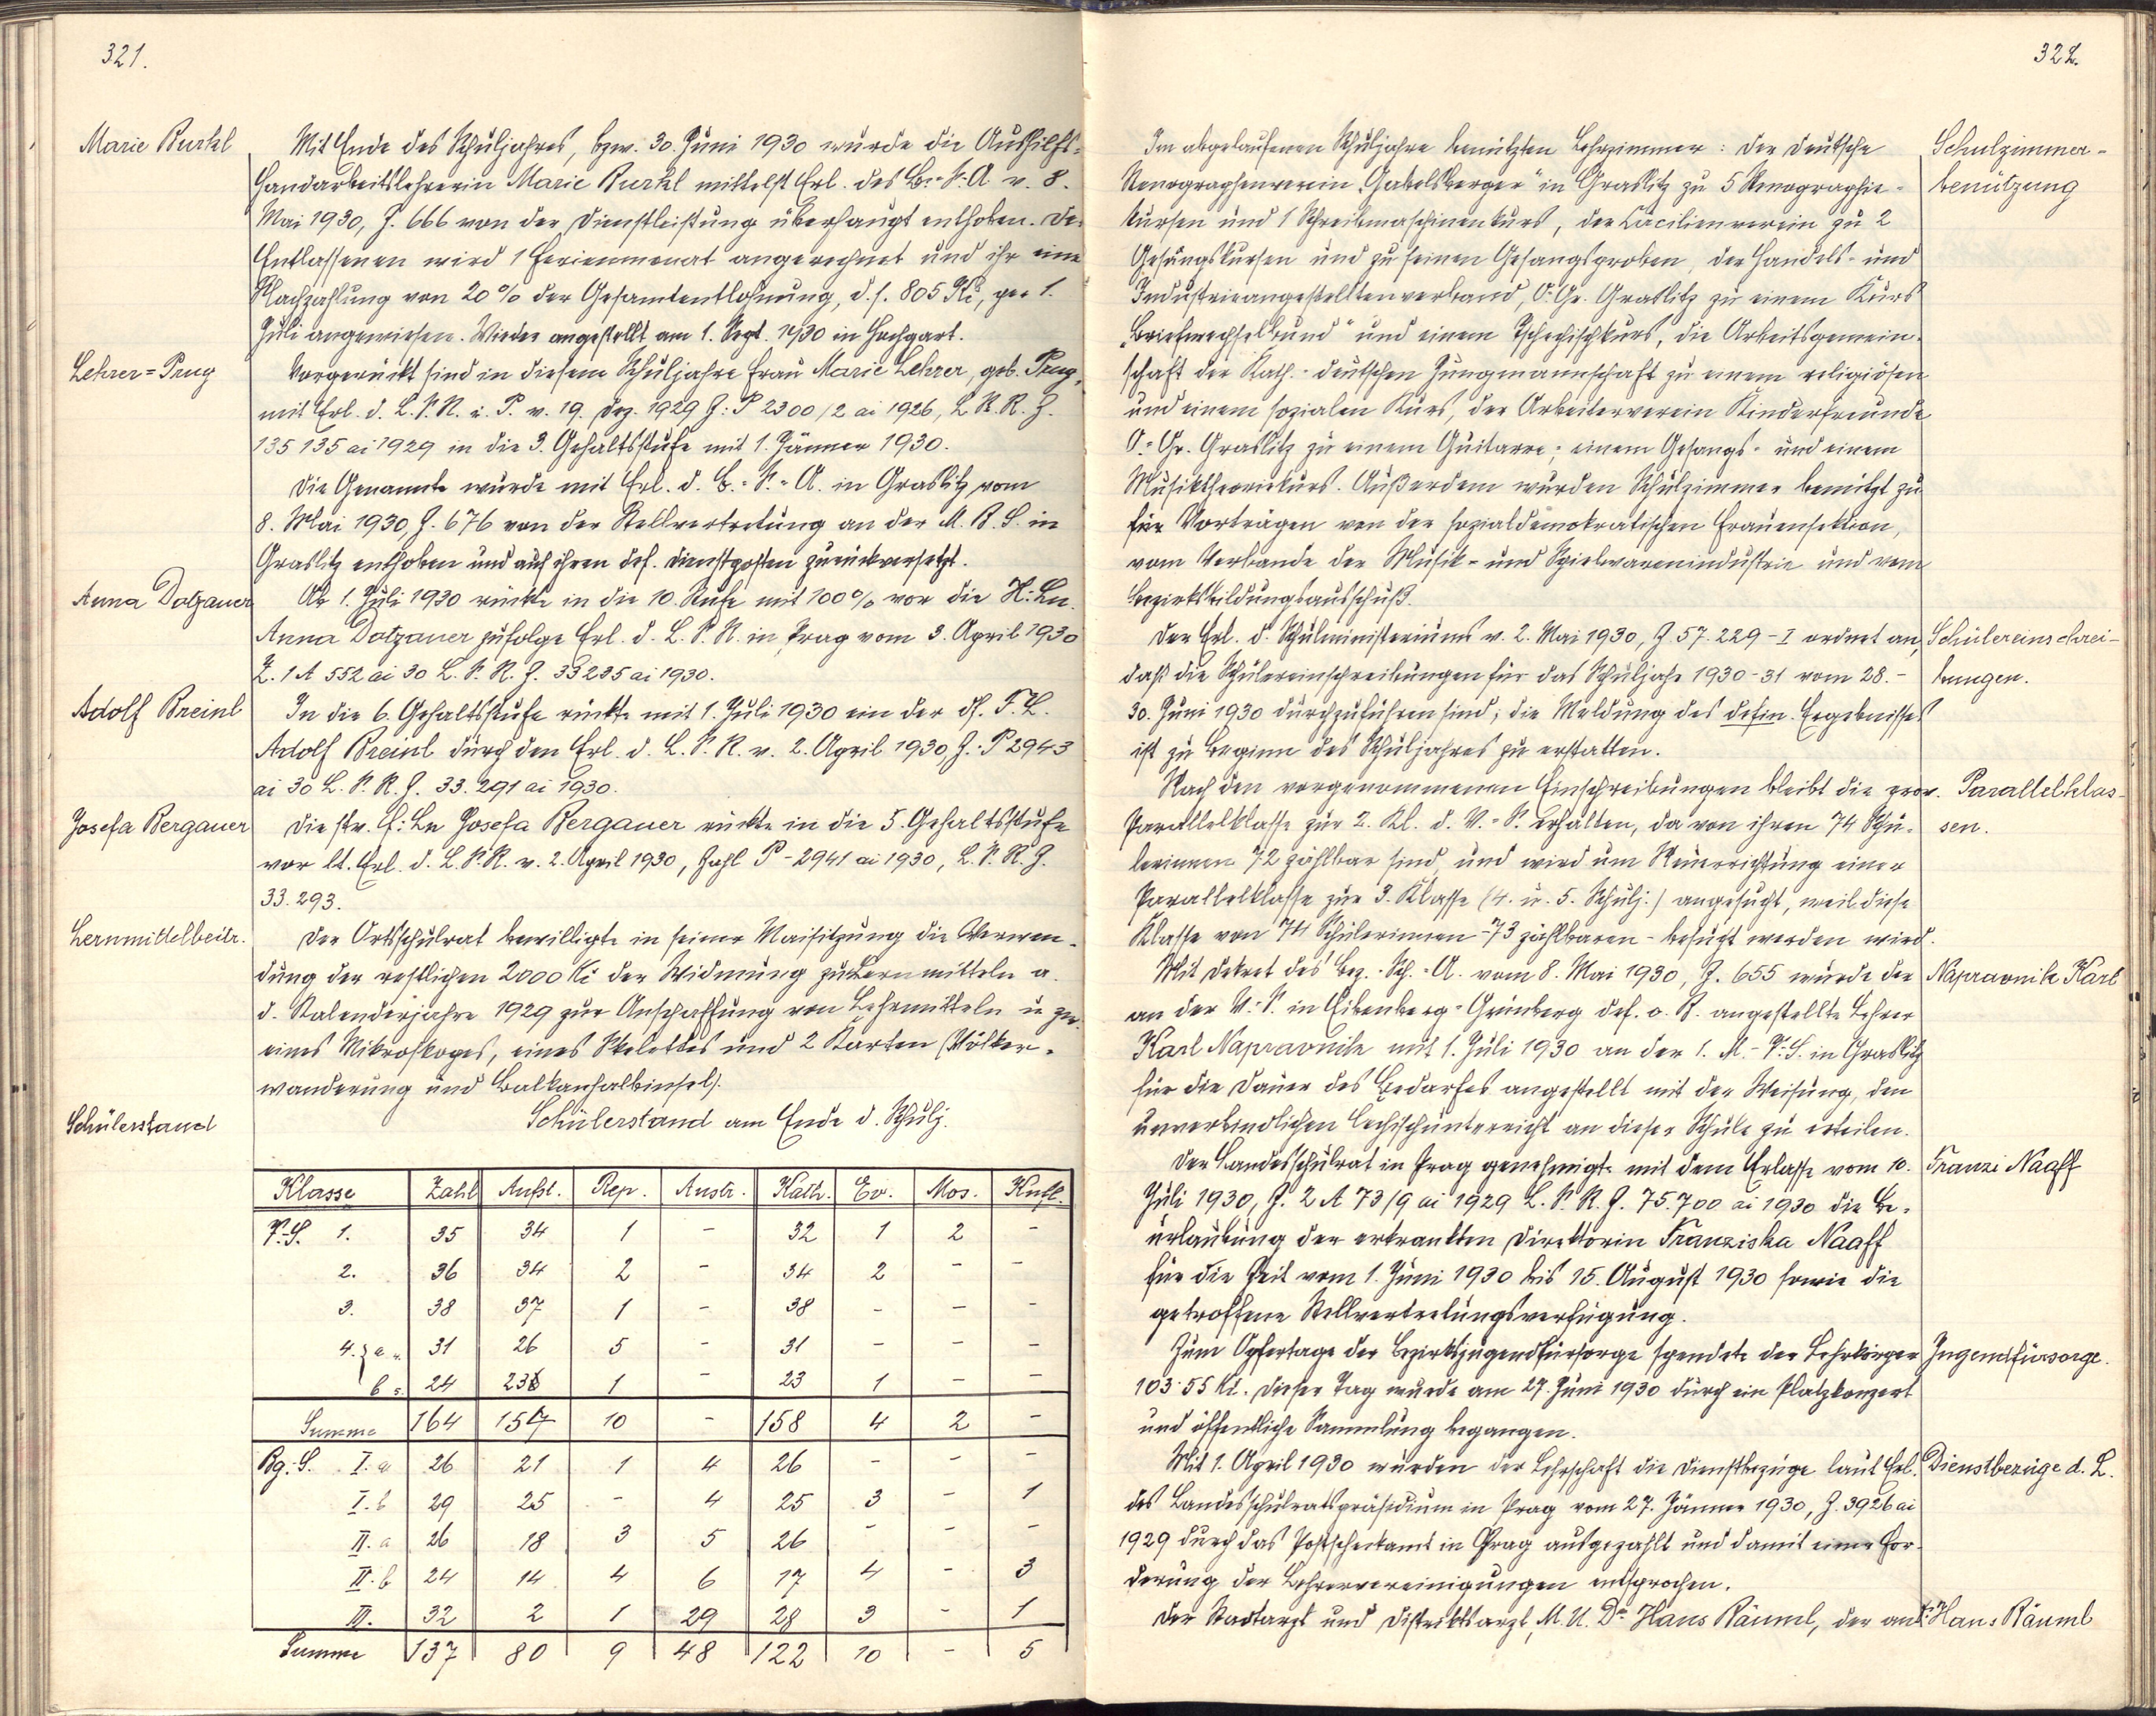 321.
Marie Burkl
Mit Ende des Schuljahres, bzw. 30. Juni 1930 wurde die Aushilfs-
Handarbeitslehrerin Marie Burkl mittelst Erl. des B.-S.-A. v. 8.
Mai 1930, Z. 666 von der Dienstleistung überhaupt enthoben. Der
Entlassenen wird 1 Ferienmonat angerechnet und ihr eine
Nachzahlung von 20% der Gesamtentlohnung, d. s. 805 Kč, per 1.
Juli angewiesen. Wieder angestellt am 1. Sept. 1930 in Hochgart.
Lehrer=Prug
Vorgerückt sind in diesem Schuljahre Frau Marie Lehrer, geb. Prug,
mit Erl. d. L. S. R. i. P. v. 19. Dez. 1929 Z: P 2300/2 ai 1926, L. S. R. Z.
135 135 ai 1929 in die 3. Gehaltsstufe mit 1. Jänner 1930.
Die Genannte wurde mit Erl. d. B.=S.=A. in Graslitz vom
8. Mai 1930, Z. 676 von der Stellvertretung an der M. B. S. in
Graslitz enthoben und auf ihren def. Dienstposten zurückversetzt.
Anna Dotzauer
Ab 1. Juli 1930 rückte in die 10. Stufe mit 100% vor die H. Ln.
Anna Dotzauer zufolge Erl. d. L. S. R. in Prag vom 3. April 1930
Z. 1 A 552 ai 30 L. S. R. Z. 33235 ai 1930.
Adolf Breinl
In die 6. Gehaltsstufe rückte mit 1. Juli 1930 ein der df. F. L.
Adolf Breinl durch den Erl. d. L. S. R. v. 2. April 1930, Z: P 2943
ai 30 L. S. R. Z. 33.291 ai 1930.
Josefa Bergauer
Die str. f: Ln Josefa Bergauer rückte in die 5. Gehaltsstufe
vor lt. Erl. d. L. S. R. v. 2. April 1930, Zahl P-2941 ai 1930, L. S. R. Z.
33.293.
Lernmittelbeitr.
Der Ortsschulrat bewilligte in seiner Maisitzung die Verwen-
dung der restlichen 2000 Kč der Widmung zu Lernmitteln a.
d. Kalenderjahre 1929 zur Anschaffung von Lehrmitteln u. zw.
eines Mikroskopes, eines Skelettes und 2 Karten (Völker-
wanderung und Balkanhalbinsel).
Schülerstand
Schülerstand am Ende d. Schulj.
Klasse Zahl Aufst. Rep. Austr. Kath. Ev. Mos. Knfl.
V.-S. 1. 35 34 1 - 32 1 2 -
2. 36 34 2 - 34 2 - -
3. 38 37 1 - 38 - - -
4. a 31 26 5 - 31 - - -
b 24 23 1 - 23 1 - -
Summe 164 154 10 - 158 4 2 -
Bg.-S. I. a 26 21 1 4 26 - - -
I. b 29 25 - 4 25 3 - 1
II. a 26 18 3 5 26 - - -
II. b 24 14 4 6 17 4 - 3
III. 32 2 1 29 28 3 - 1
Summe 137 80 9 48 122 10 - 5
322.
Schulzimmer-
benützung
Im abgelaufenen Schuljahre benützten Lehrzimmer: Der deutsche
Stenographenverein „Gabelsberger" in Graslitz zu 5 Stenographie-
kursen und 1 Schreibmaschinenkurs, der Cäcilienverein zu 2
Gesangskursen und zu seinen Gesangsproben, der Handels- und
Industrieangestelltenverband, O. Gr. Graslitz zu einem Kurs
„Briefwechselkund" und einem Tschechischkurs, die Arbeitsgemein-
schaft der Kath.-deutschen Jungmannschaft zu einem religiösen
und einem sozialen Kurs, der Arbeiterverein Kinderfreunde
O.=Gr. Graslitz zu einem Guitarre-, einem Gesangs- und einem
Musiktheoriekurs. Außerdem wurden Schulzimmer benützt zu
für Vorträgen von der sozialdemokratischen Frauensektion,
vom Verbande der Musik- und Spielwarenindustrie und vom
Bezirksbildungsausschuß.
Schülereinschrei-
bungen.
Der Erl. d. Schulministeriums v. 2. Mai 1930, Z. 57.229-I ordnet an,
daß die Schülereinschreibungen für das Schuljahr 1930-31 vom 28.-
30. Juni 1930 durchzuführen sind; die Meldung des defin. Ergebnisses
ist zu Beginn des Schuljahres zu erstatten.
Parallelklas-
sen.
Nach den vorgenommenen Einschreibungen bleibt die prov.
Parallelklasse zur 2. Kl. d. V.=S. erhalten, da von ihren 74 Schü-
lerinnen 72 zählbar sind, und wird um Neuerrichtung einer
Parallelklasse zur 3. Klasse (4. u. 5. Schulj.) angesucht, weil diese
Klasse von 74 Schülerinnen - 73 zählbaren - besucht werden wird.
Napravnik Karl
Mit Dekret des Bez.-Sch.=A. vom 8. Mai 1930, Z. 655 wurde der
an der V.-S. in Eibenberg-Grünberg def. o. R. angestellte Lehrer
Karl Napravnik mit 1. Juli 1930 an der 1. M.-V. S. in Graslitz
für die Dauer des Bedarfes angestellt mit der Weisung, den
unverbindlichen Čechischunterricht an dieser Schule zu erteilen.
Franzi Naaff
Der Landesschulrat in Prag genehmigte mit dem Erlasse vom 10.
Juli 1930, Z. 2 A 73/9 ai 1929 L. S. R. Z. 75.700 ai 1930 die Be-
urlaubung der erkrankten Direktorin Franziska Naaff
für die Zeit vom 1. Juni 1930 bis 15. August 1930 sowie die
getroffene Stellvertretungsverfügung.
Jugendfürsorge.
Zum Opfertage der Bezirksjugendfürsorge spendete der Lehrkörper
103.55 Kč. Dieser Tag wurde am 27. Juni 1930 durch ein Platzkonzert
und öffentliche Sammlung begangen.
Dienstbezüge d. L.
Mit 1. April 1930 wurden der Lehrschaft die Dienstbezüge laut Erl.
des Landesschulratspräsidium in Prag vom 27. Jänner 1930, Z. 3926 ai
1929 durch das Postscheckamt in Prag ausgezahlt und damit einer For-
derung der Lehrervereinigungen entsprochen.
Hans Räuml
Der Stadtarzt und Distriktsarzt, M. U. Dr Hans Räuml, der an